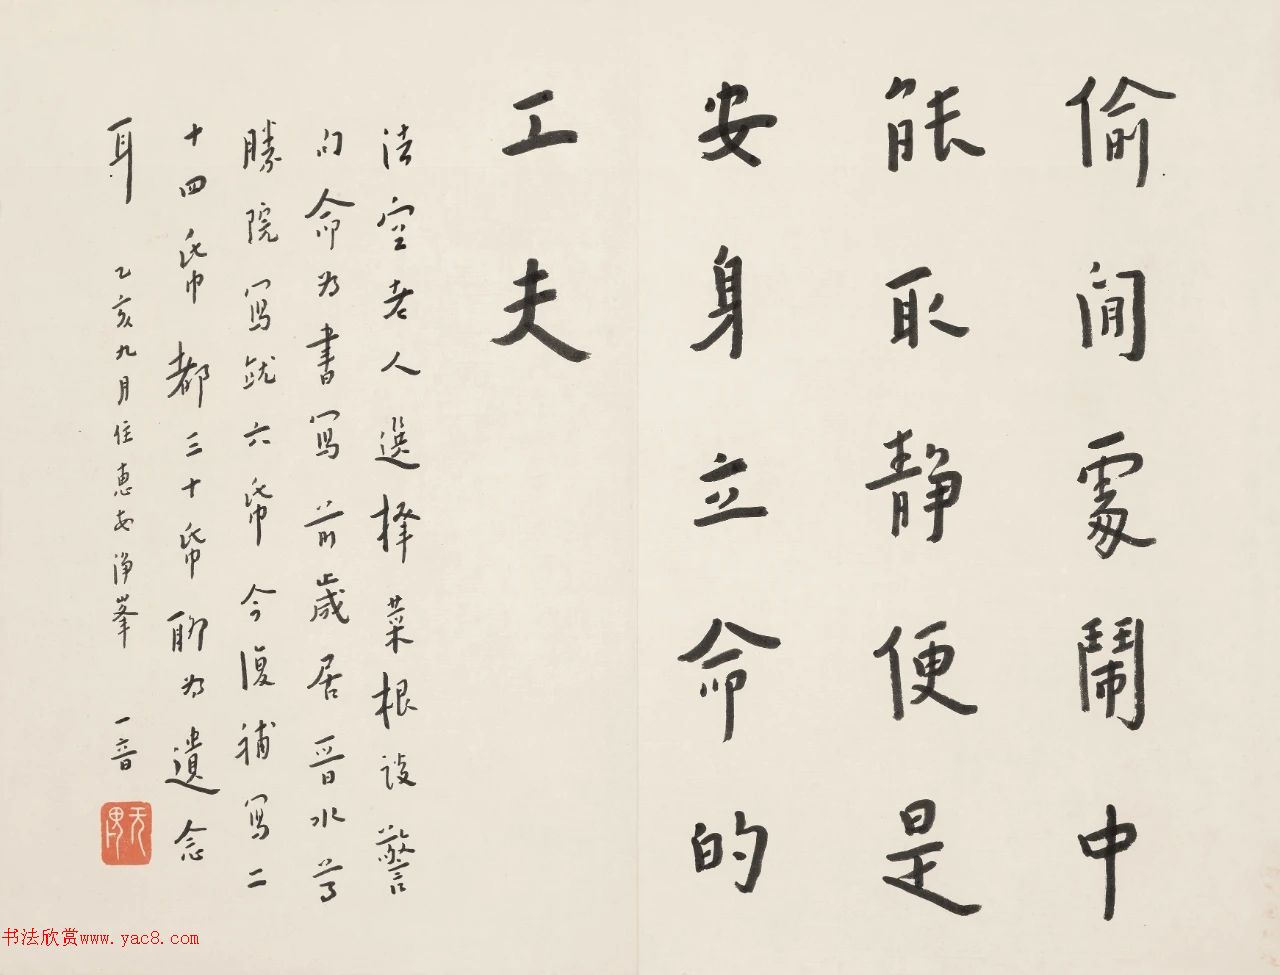 偷閒處鬧中
能取静便是
安身立命的
工夫
法空老人選擇菜根談警
句命为書寫前歲居晉水尊
勝院寫就六帋今復補寫二
十四帋都三十帋聊为遺念
耳 乙亥九月住惠安淨峯 一音
书法欣赏www.yac8.com